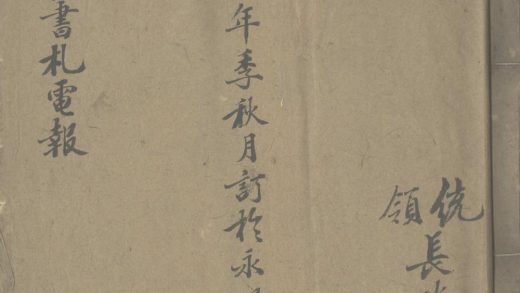 統領
長
年季秋月訂於永
書札電報